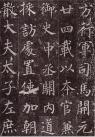 方行軍司馬開元
廿四載以本官兼
御史中丞馬
採訪處置使加朝
散大夫太子左庶